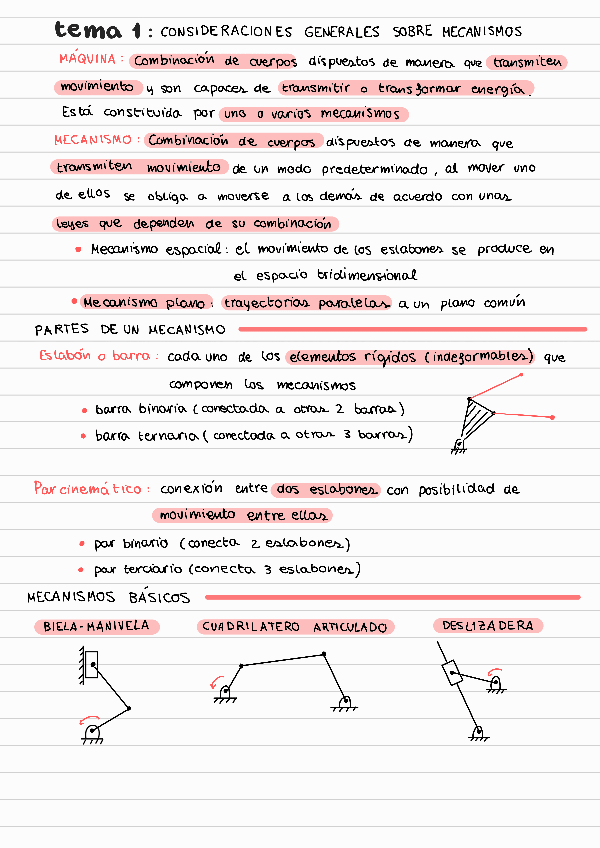 tema 1: CONSIDERACIONES GENERALES SOBRE MECANISMOS
MÁQUINA: Combinación de cuerpos dispuestos de manera que transmiten
movimiento y son capaces de transmitir o transformar energía.
Está constituida por uno o varios mecanismos
MECANISMO: Combinación de cuerpos dispuestos de manera que
transmiten movimiento de un modo predeterminado, al mover uno
de ellos se obliga a moverse a los demás de acuerdo con unas
leyes que dependen de su combinación
• Mecanismo espacial: el movimiento de los eslabones se produce en
el espacio tridimensional
• Mecanismo plano: trayectorias paralelas a un plano común
PARTES DE UN MECANISMO
Eslabón o barra: cada uno de los elementos rígidos (indeformables) que
componen los mecanismos
• barra binaria (conectada a otras 2 barras)
• barra ternaria (conectada a otras 3 barras)
Par cinemático: conexión entre dos eslabones con posibilidad de
movimiento entre ellos
• par binario (conecta 2 eslabones)
• par terciario (conecta 3 eslabones)
MECANISMOS BÁSICOS
BIELA-MANIVELA CUADRILATERO ARTICULADO DESLIZADERA